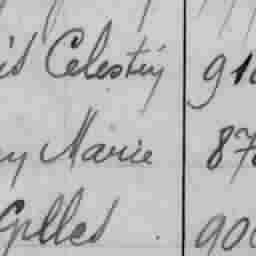 id Celestin 910
ey Marie 87
Gilles . 900